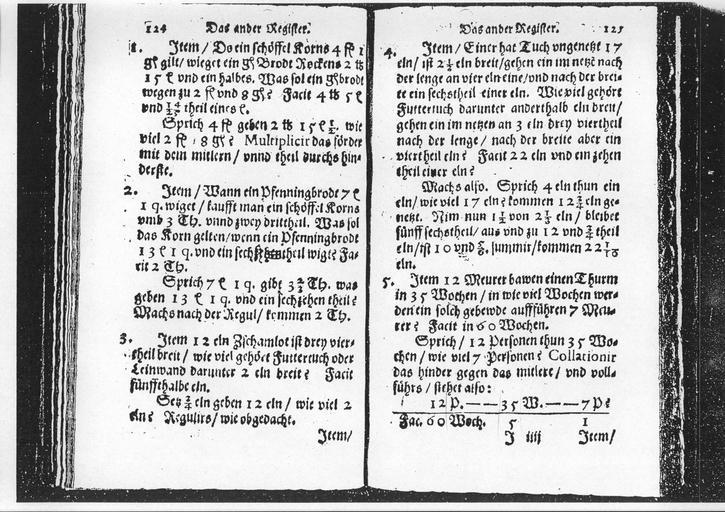 124 Das ander Register.
1. Item / Do ein schöffel Korns 4 fl 1
gß gilt / wieget ein gß Brodt Rockens 2 ℔
15 ℓ und ein halbes. Was sol ein gßbrodt
wegen zu 2 fl und 8 gß? Facit 4 ℔ 5 ℓ
und theil eines ℓ.
Sprich 4 fl geben 2 ℔ 15 ℓ ½. wie
viel 2 fl / 8 gß? Multiplicir das förder
mit dem mitlern / vnnd theil durchs hin-
derste.
2. Item / Wann ein Pfenningbrodt 7 ℓ
1 q. wiget / kaufft man ein schöffel Korns
vmb 3 Th. vnnd zwey drittheil. Was sol
das Korn gelten / wenn ein Pfenningbrodt
13 ℓ 1 q. und ein sechzehentheil wigt? Fa-
cit 2 Th.
Sprich 7 ℓ 1 q. gibt 3⅔ Th. was
geben 13 ℓ 1 q. und ein sechzehen theil?
Machs nach der Regul / kommen 2 Th.
3. Item 12 eln Zschamlot ist drey vier-
theil breit / wie viel gehöret Futtertuch oder
Leinwand darunter 2 eln breit? Facit
fünfftehalbe eln.
Setz ¾ eln geben 12 eln / wie viel 2
eln? Regulirs / wie obgedacht.
Item /
Das ander Register. 125
4. Item / Einer hat Tuch vngenetzt 17
eln / ist 2⅓ eln breit / gehen ein im netzē nach
der lenge an vier eln eine / vnd nach der brei-
te ein sechstheil einer eln. Wie viel gehört
Futtertuch darunter anderthalb eln breit /
gehen ein im netzen an 3 eln drey viertheil
nach der lenge / nach der breite aber ein
viertheil eln? Facit 22 eln und ein zehen
theil einer eln?
Machs also. Sprich 4 eln thun ein
eln / wie viel 17 eln? kommen 12¾ eln ge-
netzt. Nim nun 1½ von 2⅓ eln / bleibet
fünff sechstheil / aus vnd zu 12 vnd ¾ theil
eln / ist 10 vnd ⅝. summir / kommen 22 1/10
eln.
5. Item 12 Meurer bawen einen Thurm
in 35 Wochen / in wie viel Wochen wer-
den ein solch gebewde auffführen 7 Meu-
rer? Facit in 60 Wochen.
Sprich / 12 Personen thun 35 Wo-
chen / wie viel 7 Personen? Collationir
das hinder gegen das mitlere / vnd voll-
führs / stehet also:
12 P. — — 35 W. — — 7 P?
Fac. 60 Woch. 5 1
J iiij Item /